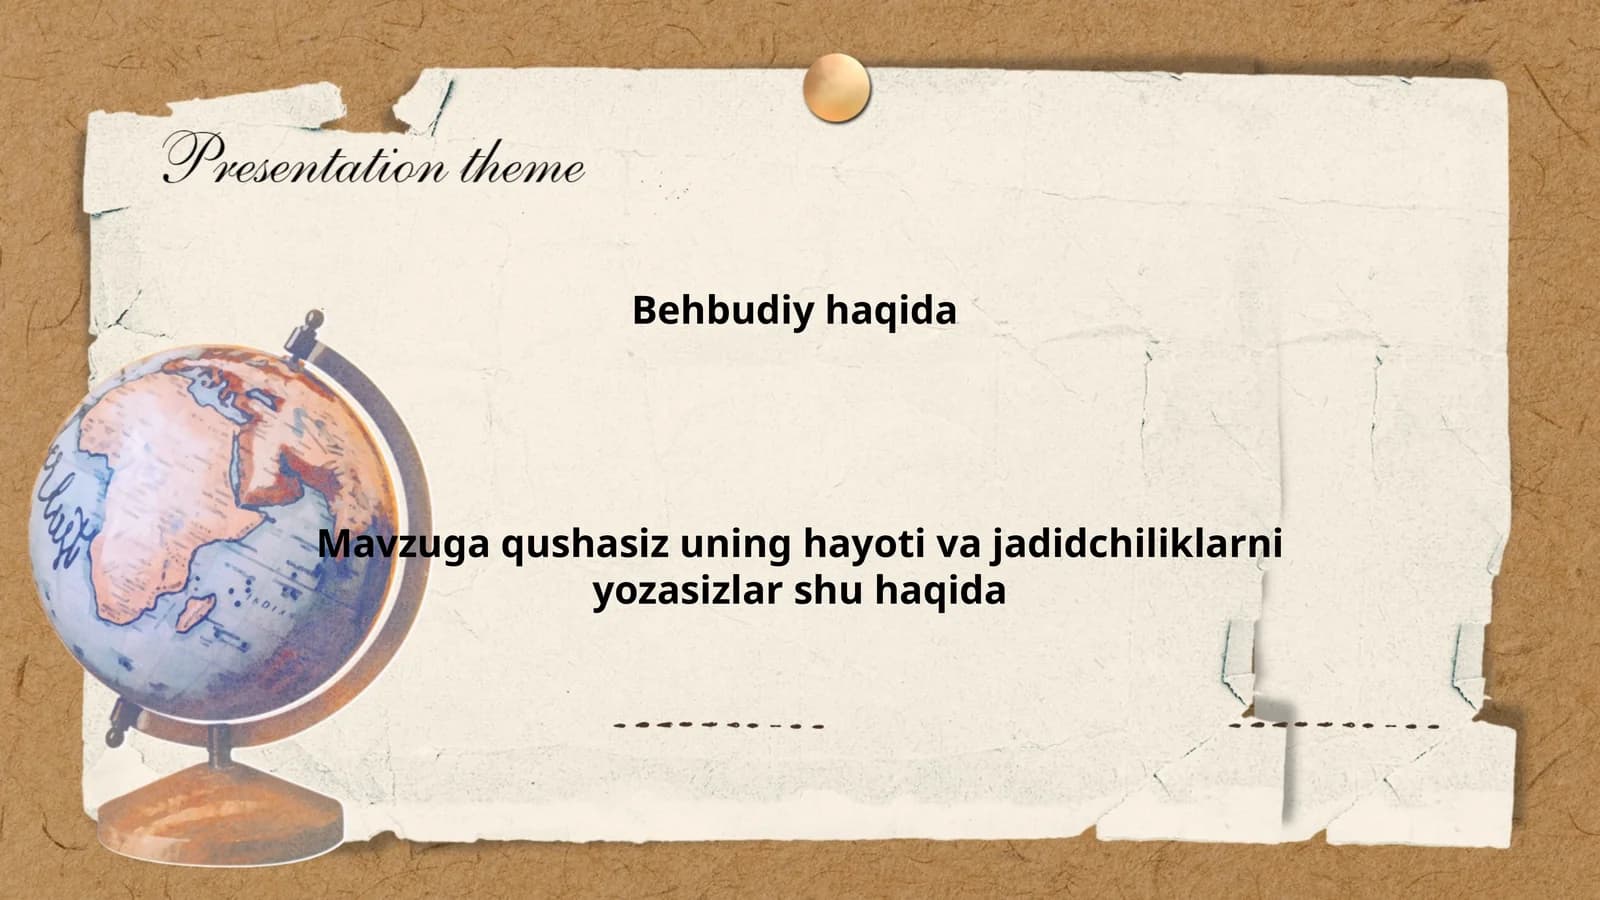 Presentation theme
Behbudiy haqida
Mavzuga qushasiz uning hayoti va jadidchiliklarni
yozasizlar shu haqida